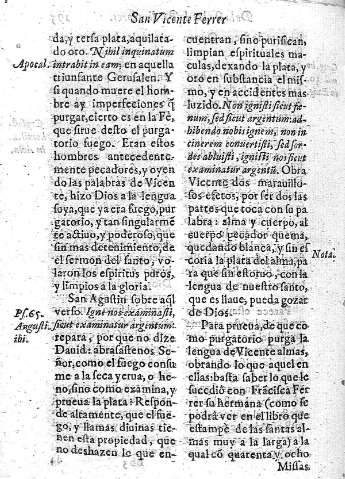 San Vicente Ferrer
da, y tersa plata, aquilata-
do oro. Nihil inquinatum
Apocal. intrabit in eam; en aquella
triunfante Gerusalen. Y
si quando muere el hombre ay imperfeciones q̃
purgar, cierto es en la Fè,
que sirue desto el purga-
torio fuego. Eran estos
hombres antecedente-
mente pecadores, y oyen
do las palabras de Vicen
te, hizo Dios a la lengua
suya, que ya era fuego, pur
gatorio, y tan singularmẽ
te actiuo, y poderoso, que
sin mas detenimiento, de
el sermon del santo, vo-
laron los espiritus puros,
y limpios a la gloria.
San Agustin sobre aq̃l
Ps. 65. verso. Igne nos examinasti,
Augusti. sicut examinatur argentum.
ibi. repara, por que no dize
Dauid: abrasastenos Se-
ñor, como el fuego consu
me a la seca yerua, o he-
no, sino como examina, y
prueua la plata: Respon-
de altamente, que el fue-
go, y llamas diuinas tie-
nen esta propiedad, que
no deshazen lo que en-
cuentran, sino purifican,
limpian espirituales ma-
culas, dexando la plata, y
oro en substancia el mis-
mo, y en accidentes mas
luzido. Non ignisti sicut fæ-
num, sed sicut argentum: ad-
hibendo nobis ignem, non in
cinerem conuertisti, sed sor-
des abluisti, ignisti nos sicut
examinatur argentũ. Obra
Vicente dos marauillo-
sos efetos, por ser dos las
partes que toca con su pa
labra: alma y cuerpo, al
cuerpo pecador quema,
quedando blanca, y sin es
coria la plata del alma, pa Nota.
ra que sin estoruo, con la
lengua de nuestro santo,
que es llaue, pueda gozar
de Dios.
Para prueua, de que co
mo purgatorio purga la
lengua de Vicente almas,
obrando lo que aquel en
ellas: basta saber lo que le
succediò con Frãcisca Fer
rer su hermana (como se
podrà ver en el libro que
estampè de las santas al-
mas muy a la larga) a la
qual cõ quarenta y ocho
Missas.